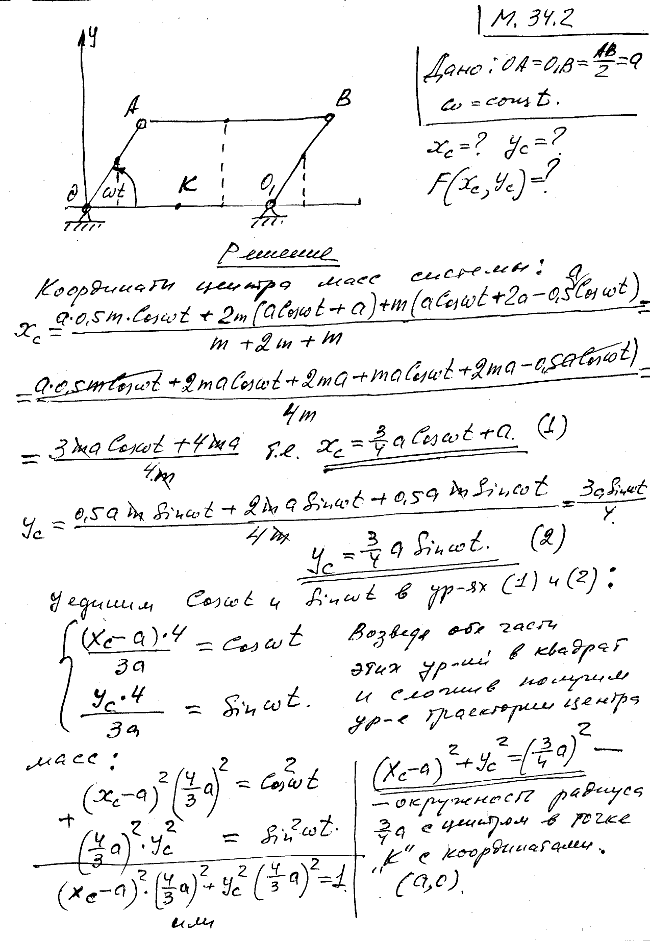 М. 34.2
Дано: OA=O₁B=AB/2=a
ω=const.
x_c=? y_c=?
F(x_c, y_c)=?
y
A
B
O
ωt
K
O₁
Решение
Координати центра масс системы:
x_c = (a·0,5m·Cosωt + 2m(aCosωt + a) + m(aCosωt + 2a - 0,5aCosωt))/(m + 2m + m) =
= (a·0,5mCosωt + 2maCosωt + 2ma + maCosωt + 2ma - 0,5aCosωt)/(4m) =
= (3maCosωt + 4ma)/(4m) т.е. x_c = 3/4 aCosωt + a. (1)
y_c = (0,5amSinωt + 2maSinωt + 0,5amSinωt)/(4m) = 3aSinωt/4.
y_c = 3/4 aSinωt. (2)
Уединим Cosωt и Sinωt в ур-ях (1) и (2):
(x_c-a)·4/3a = Cosωt
y_c·4/3a = Sinωt.
Возведя обе части
этих ур-ий в квадрат
и сложив получим
ур-е траектории центра
масс:
(x_c-a)²(4/3a)² = Cos²ωt
+
(4/3a)²·y_c² = Sin²ωt.
(x_c-a)²·(4/3a)² + y_c²(4/3a)² = 1
или
(x_c-a)² + y_c² = (3/4a)² —
— окружность радиуса
3/4a с центром в точке
"К" с координатами.
(a,0).